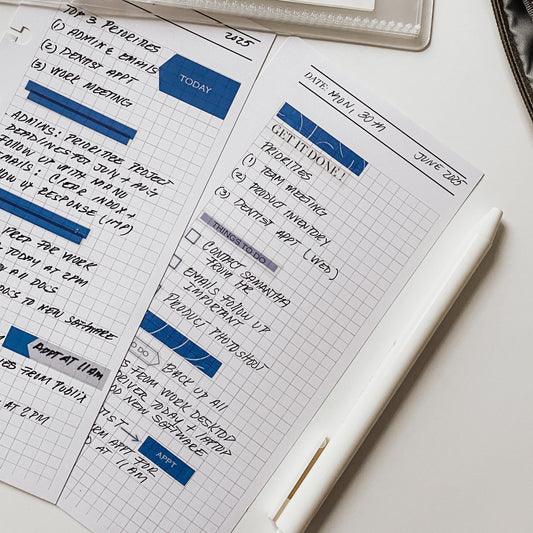 TOP 3 PRIORITIES
2025
(1) ADMIN & EMAILS
(2) DENTIST APPT
(3) WORK MEETING
TODAY
ADMINS: PRIORITIZE PROJECT
DEADLINES FOR JULY & AUG
FOLLOW UP WITH MANU
EMAILS: CLEAR INBOX +
UP RESPONSE (IMP)
PREP FOR WORK
TODAY AT 2PM
ALL DOCS
DOCS TO NEW SOFTWARE
APPT AT 11AM
FROM PUBLIX
AT 2PM
DATE: MON, 30TH
JUNE 2025
GET IT DONE!
PRIORITIES
(1) TEAM MEETING
(2) PRODUCT INVENTORY
(3) DENTIST APPT (WED)
THINGS TO DO
CONTACT SAMANTHA
FROM HR
EMAILS FOLLOW UP
IMPORTANT
PRODUCT PHOTOSHOOT
DO
BACK UP ALL
FROM WORK DESKTOP
TODAY +
NEW SOFTWARE
APPT FOR
AT 11AM
APPT